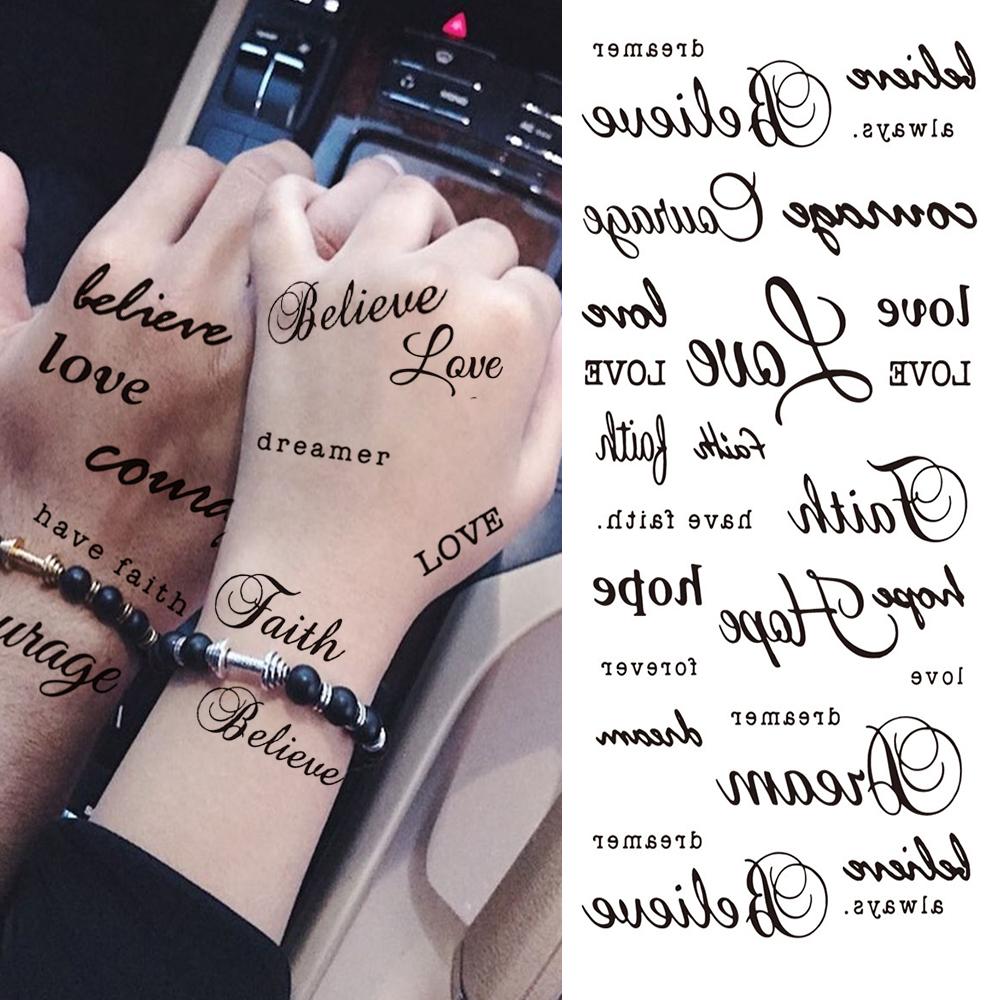 believe
love
have faith
urage
Believe
Love
dreamer
LOVE
Faith
Believe
dreamer
believe
Believe
always.
Courage courage
love
love
Love
LOVE
LOVE
faith faith
Faith
have faith.
hope
hope
Hope
forever
love
dream
dreamer
Dream
dreamer
believe
Believe
always.